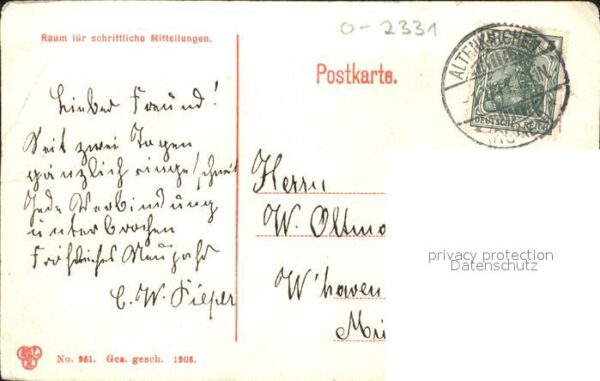 o-2331
Raum für schriftliche Mitteilungen.
Postkarte.
ALTENKIRCHEN
DEUTSCHES REICH
Lieber Freund!
Seit zwei Tagen
gänzlich eingeschneit
Jede Verbindung
unterbrochen
Fröhliches Neujahr
C. W. Sieper
Herrn
W. Oltma
W'haven
privacy protection
Datenschutz
No. 961. Ges. gesch. 1906.